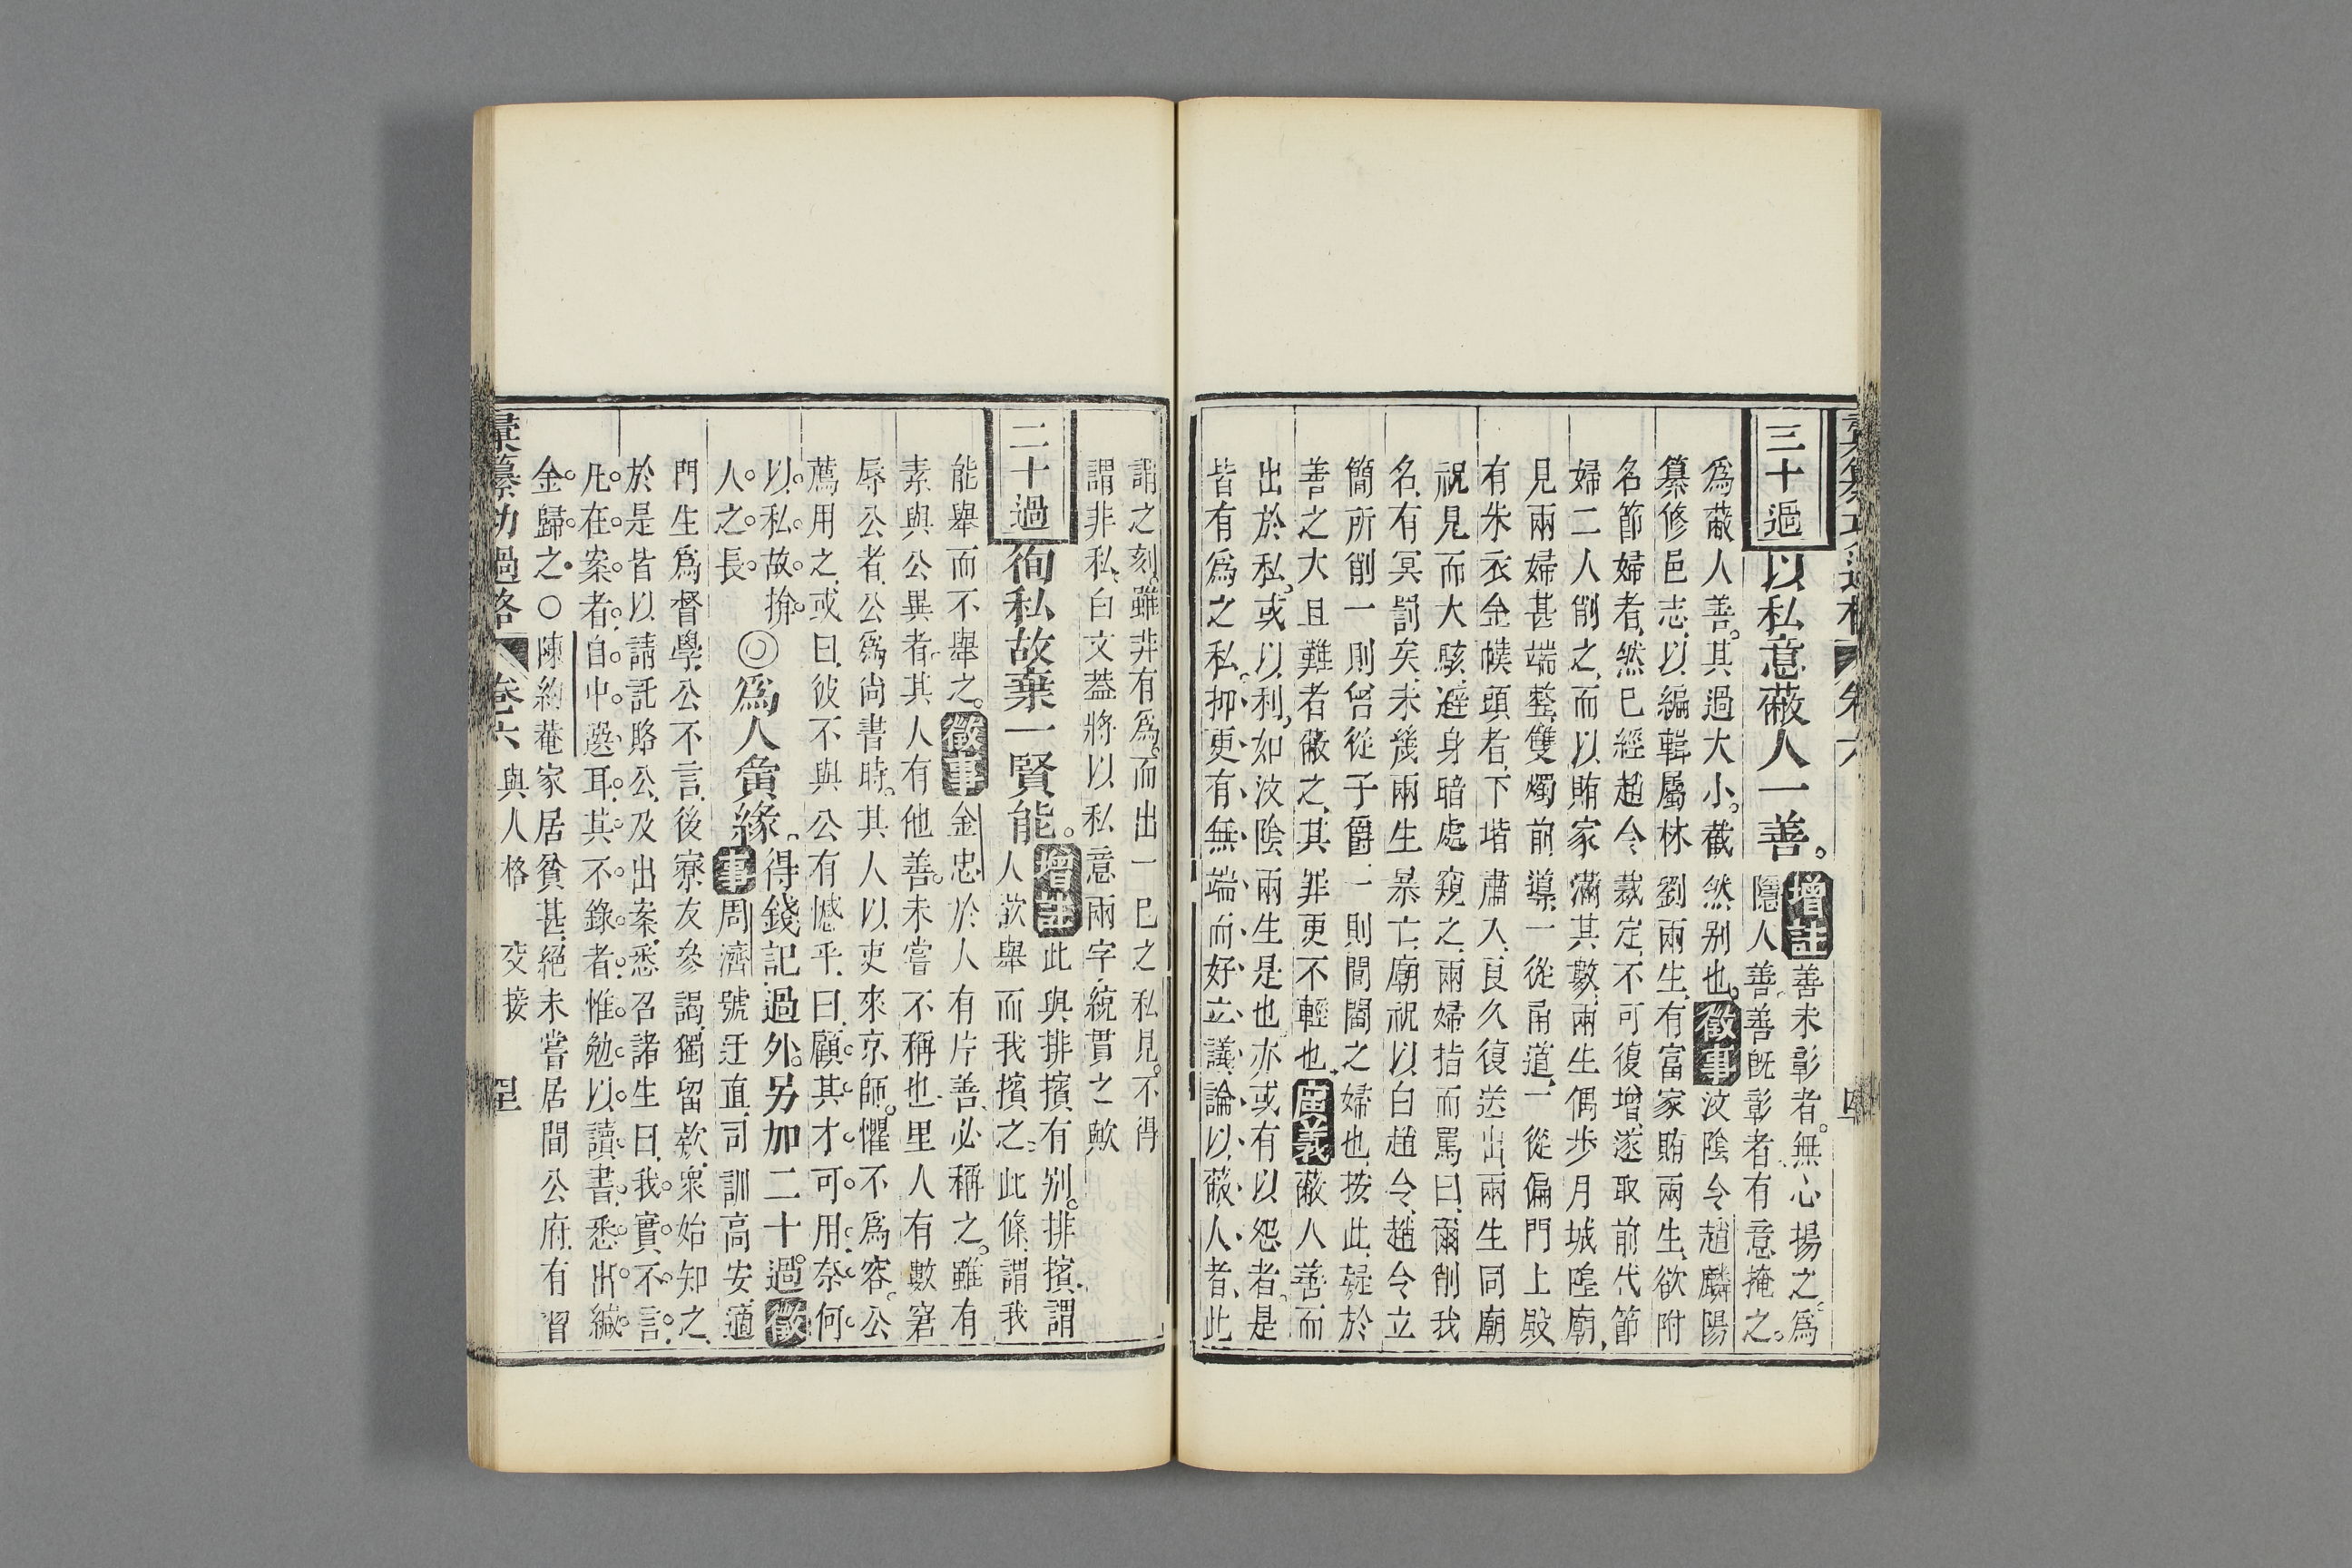 三十過以私意蔽人一善。增註善未彰者。無心揚之。爲
隱人善善旣彰者、有意掩之。
爲蔽人善。其過大小。截然別也。徵事汶陰令趙麟陽
纂修邑志、以編輯屬林劉兩生、有富家賄兩生、欲附
名節婦者、然已經趙令裁定、不可復增、遂取前代節
婦二人削之、而以賄家滿其數、兩生偶步月城隍廟、
見兩婦甚端整、雙燭前導、一從甬道、一從偏門上殿
有朱衣金幞頭者、下堦肅入、良久復送出、兩生同廟
祝見而大駭、避身暗處窺之、兩婦指而罵曰、爾削我
名、有冥罰矣、未幾兩生暴亡、廟祝以白趙令、趙令立
簡所削一則曾從子爵、一則閭閻之婦也、按此、疑於
善之大且難者蔽之、其罪更不輕也、廣義蔽人善而
出於私。或以利、如汶陰兩生是也、亦或有以怨者、是
皆有爲之私。抑更有無端而好立議論以蔽人者、此
謂之刻。雖非有爲。而出一已之私見。不得
謂非私、白文蓋將以私意兩字、統貫之歟
二十過徇私故棄一賢能。增註此與排擯有别。排擯、謂
人欲舉而我擯之、此條、謂我
能舉而不舉之。徵事金忠於人有片善、必稱之。雖有
素與公異者、其人有他善。未嘗不稱也、里人有數窘
辱公者、公爲尚書時。其人以吏來京師。懼不爲容。公
薦用之、或曰、彼不與公有憾乎、曰、顧其才可用、奈何
以私故揜
人之長
◎爲人夤緣。得錢記過外。另加二十過。徵事周濟號迂直、司訓高安、適
門生爲督學、公不言、後寮友參謁、獨留欵、衆始知之、
於是皆以請託賂公、及出案、悉召諸生曰、我實不言、
凡在案者、自中選耳、其不錄者、惟勉以讀書、悉出緘
金歸之、○陳約菴家居貧甚、絕未嘗居間公府、有習
彙纂功過格 卷六 與人格 交接